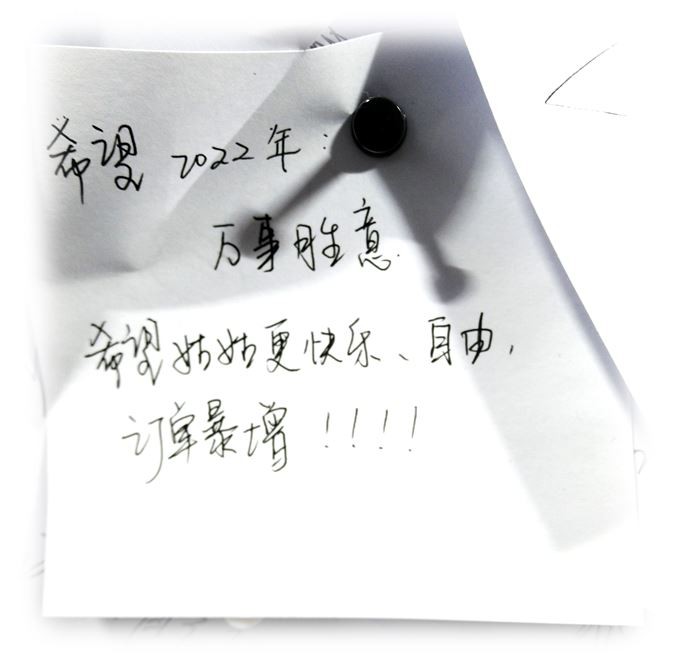 希望 2022年：
万事胜意.
希望姑姑更快乐、自由，
订单暴增！！！！